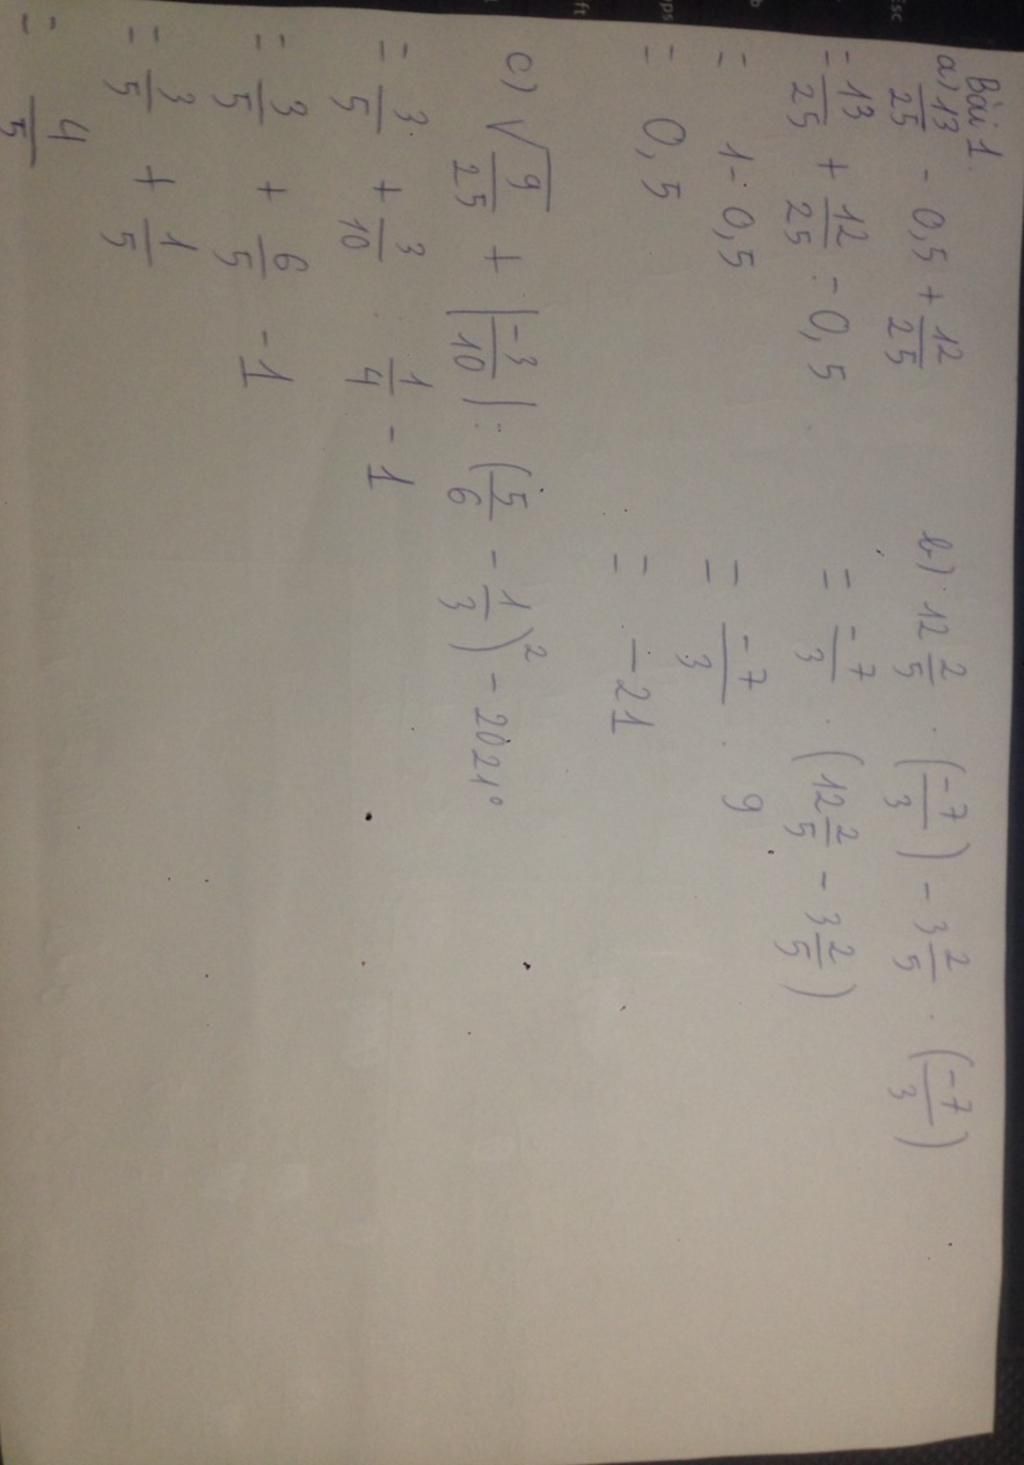 Bài 1.
a) 13/25 - 0,5 + 12/25
= 13/25 + 12/25 - 0,5
= 1 - 0,5
= 0,5
b) 12 2/5 . (-7/3) - 3 2/5 . (-7/3)
= -7/3 . (12 2/5 - 3 2/5)
= -7/3 . 9
= -21
c) √9/25 + |-3/10| : (5/6 - 1/3)² - 2021°
= 3/5 + 3/10 . 1/4 - 1
= 3/5 + 6/5 - 1
= 3/5 + 1/5
= 4/5